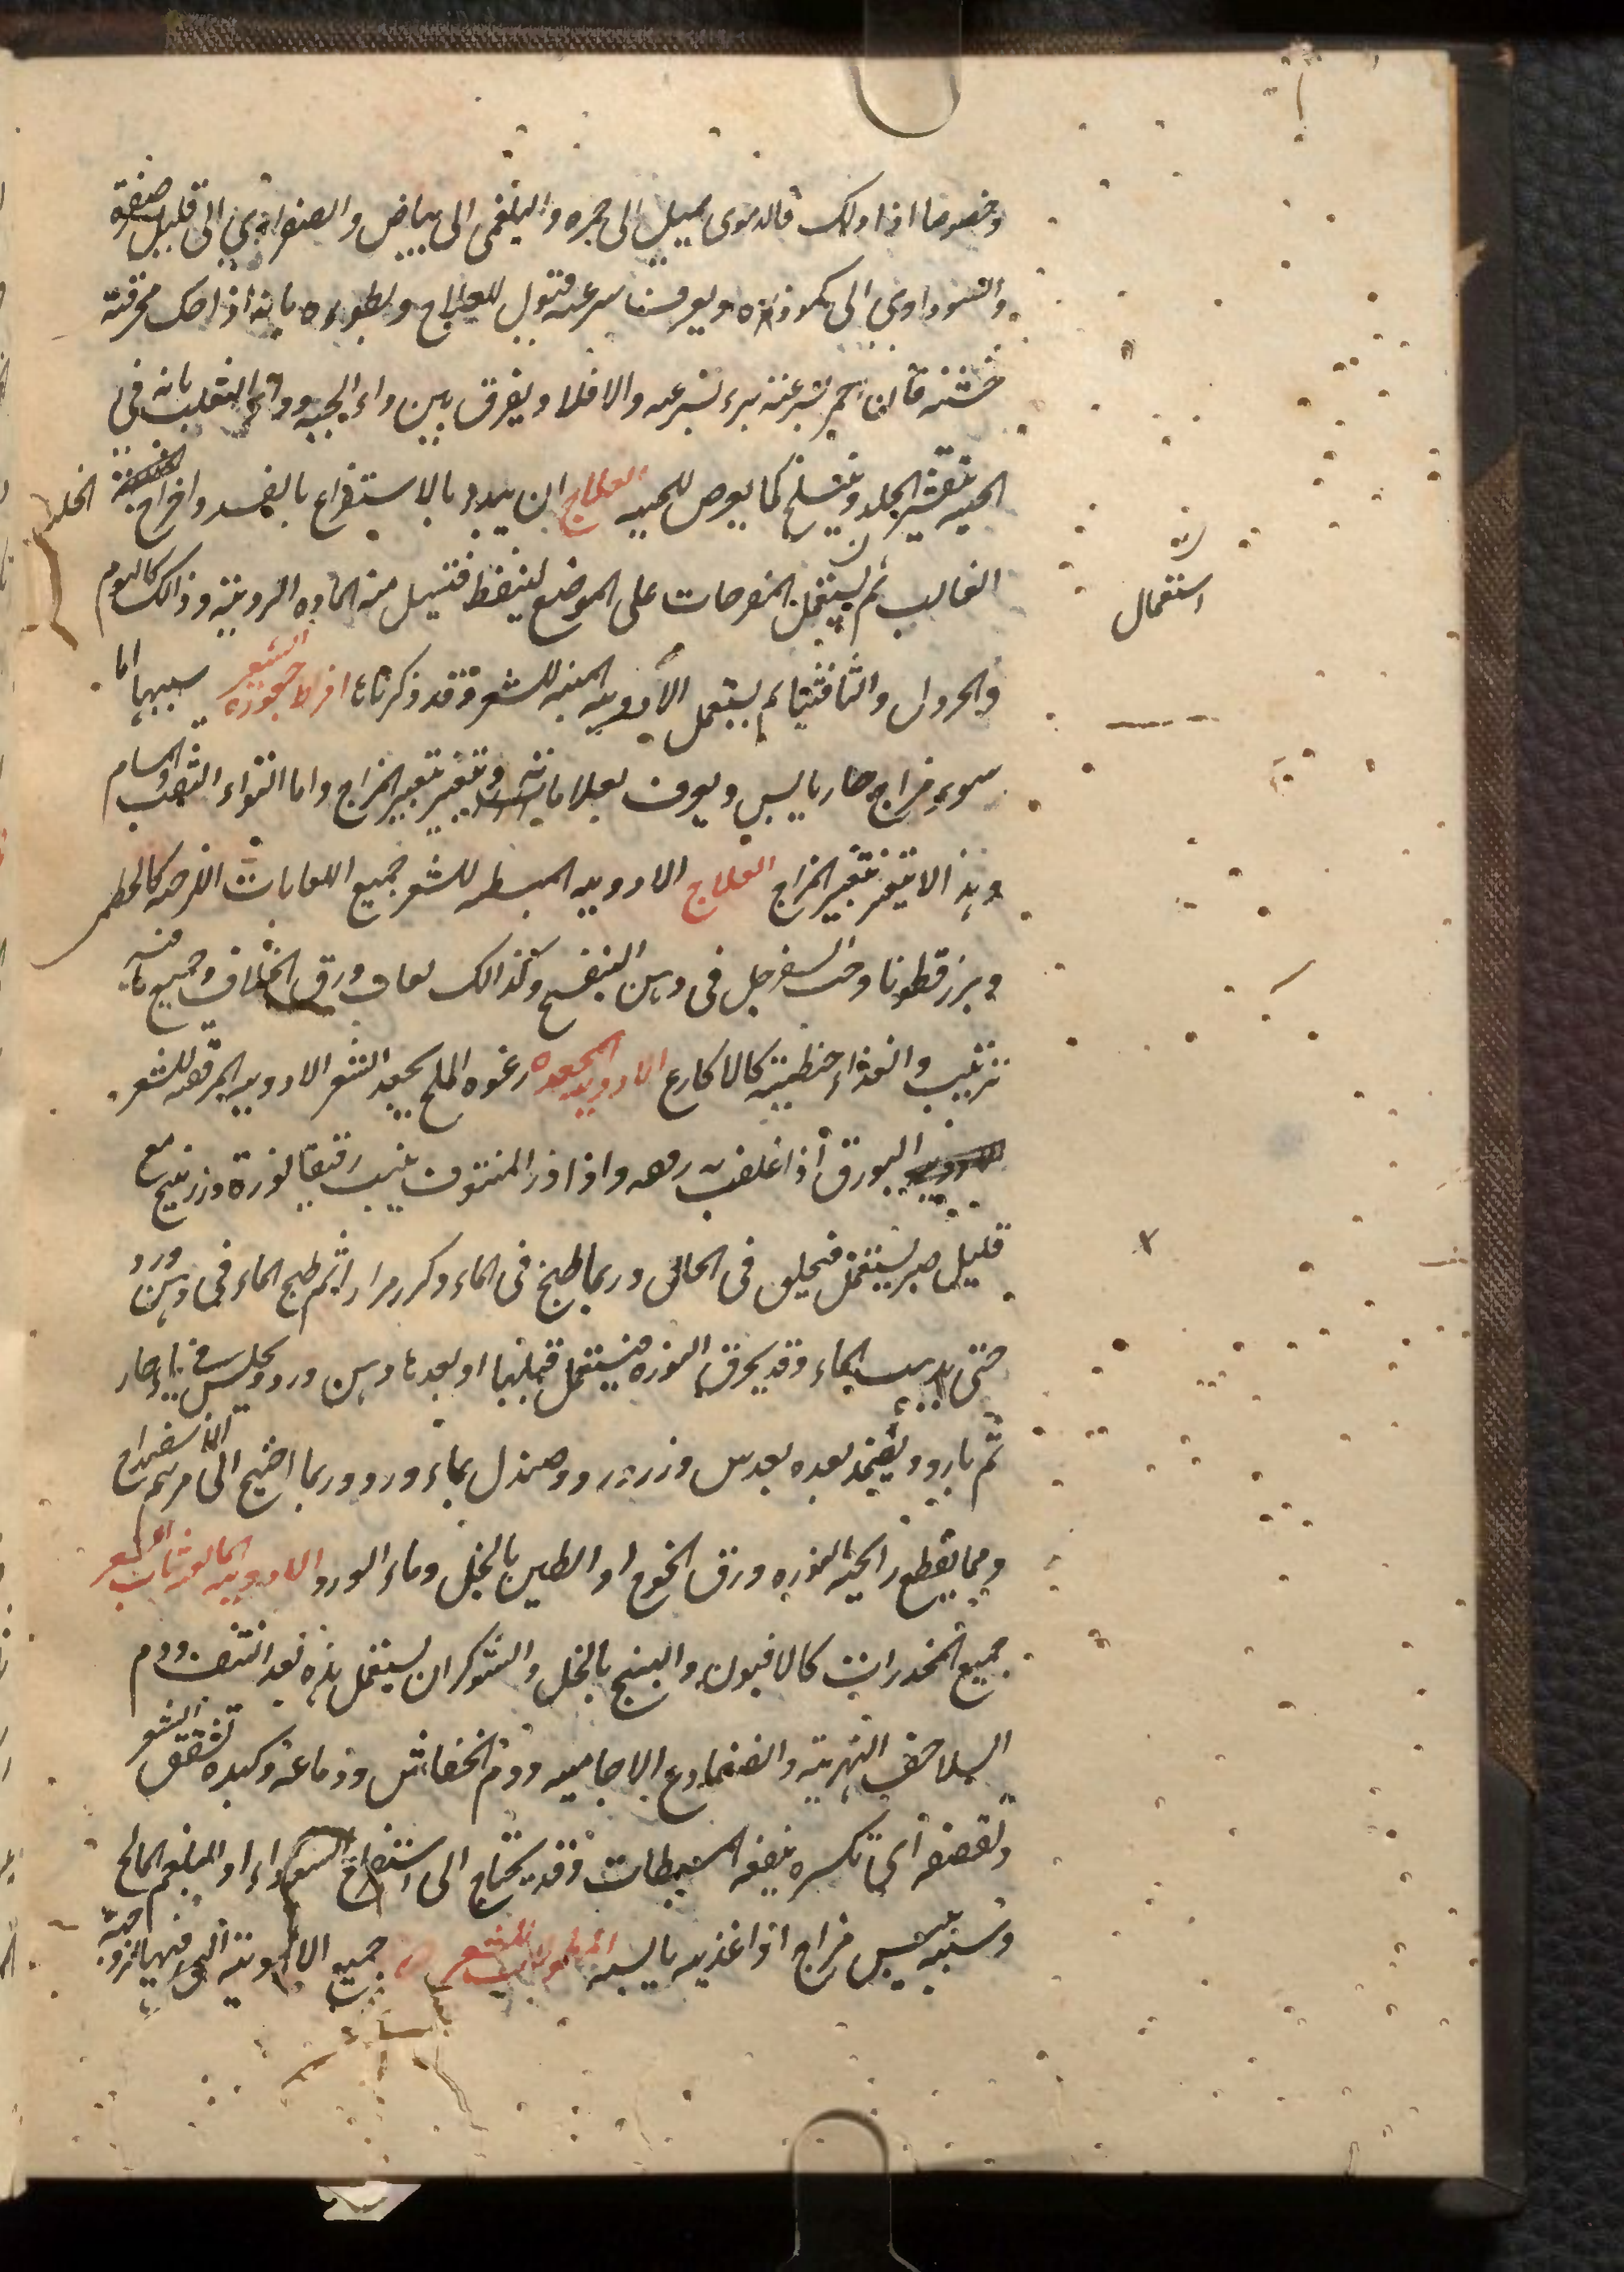 وخصوصا اذا دلك فالدموى يميل الى حمره والبلغمى الى بياض والصفراوى الى قليل صفرة
والسوداوي الى كمودة ويعرف سرعه قبول للعلاج وبطوءه بانه اذا حك بخرقة
خشنه فان احمر بسرعة برء بسرعه والا فلا ويفرق بين داء الحيه وداء الثعلب بانه فى
الحيه يتقشر الجلد وينسلخ كما يعرض للحيه العلاج ان يبدء بالاستفراغ بالفصد واخراج الخلط
الغالب ثم يستعمل المقرحات على الموضع لينفط فتسيل منه الماده الرديئة وذالك كالثوم
استعمال
والخردل والثافثيا ثم يستعمل الادويه المنبته للشعر وقد ذكرناها افراط جعودة الشعر سببها اما
سوء مزاج حار يابس ويعرف بعلاماته ويتغير بتغير المزاج واما التواء الثقب والمسام
وهذا لا يتغير بتغير المزاج العلاج الادويه المبسطه للشعر جميع اللعابات اللزجه كالخطمى
وبزر قطونا وحب السفرجل فى دهن البنفسج وكذالك لعاب ورق الخلاف وجميع ما فيه
ترطيب والغذاء حنطية كالاكارع الادويه المجعده رغوه الملح يجعد الشعر الادويه المرققه للشعر
البورق اذا غلف به رققه واذا ذر المنتوف ينبت رقيقا نورة وزرنيخ مع
قليل صبر يستعمل فيحلق فى الحال وربما طبخ فى الماء وكرر مرارا ثم طبخ الماء فى دهن ورد
حتى يذهب الماء وقد يحرق النوره فيستعمل قبلها او بعدها دهن ورد ويجلس فى ماء حار
ثم بارد ويضمد بعده بعدس وزر ورد وصندل بماء ورد وربما احتيج الى مرهم الاسفيداج
ومما يقطع رائحه النوره ورق الخوخ او الطين بالخل وماء الورد الادويه المانعه نبات الشعر
جميع المخدرات كالافيون والبنج بالخل والشوكران يستعمل هذه بعد النتف ودم
السلاحف النهرية والضفادع الاجاميه ودم الخفاش ودماغه وكبده تشقق الشعر
وتقصفه اى تكسره ينفعه المبسطات وقد يحتاج الى استفراغ السوداء او البلغم المالح
وسببه يبس مزاج او اغذيه يابسه المطولات للشعر جميع الادوية التى فيها لزوجة